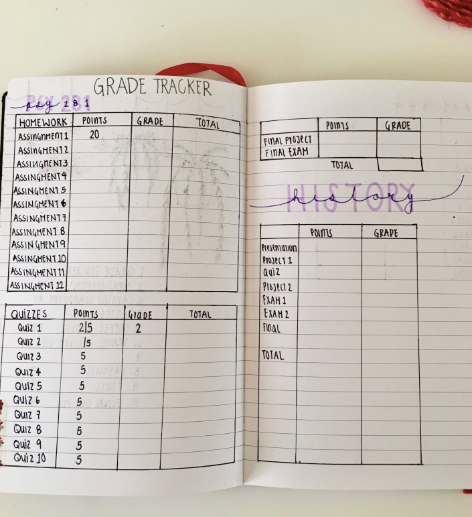 GRADE TRACKER
PSY 281
psy 281
HOMEWORK POINTS GRADE TOTAL
ASSINGNMENT 1 20
ASSINGMENT 2
ASSINGMENT 3
ASSINGMENT 4
ASSINGMENT 5
ASSINGMENT 6
ASSINGMENT 7
ASSINGMENT 8
ASSINGMENT 9
ASSINGMENT 10
ASSINGMENT 11
ASSINGMENT 12
QUIZZES POINTS GRADE TOTAL
Quiz 1 2/5 2
Quiz 2 /5
Quiz 3 5
Quiz 4 5
Quiz 5 5
Quiz 6 5
Quiz 7 5
Quiz 8 5
Quiz 9 5
Quiz 10 5
POINTS GRADE
FINAL PROJECT
FINAL EXAM
TOTAL
HISTORY
history
POINTS GRADE
Presentation
PROJECT 1
QUIZ
PROJECT 2
EXAM 1
EXAM 2
FINAL
TOTAL